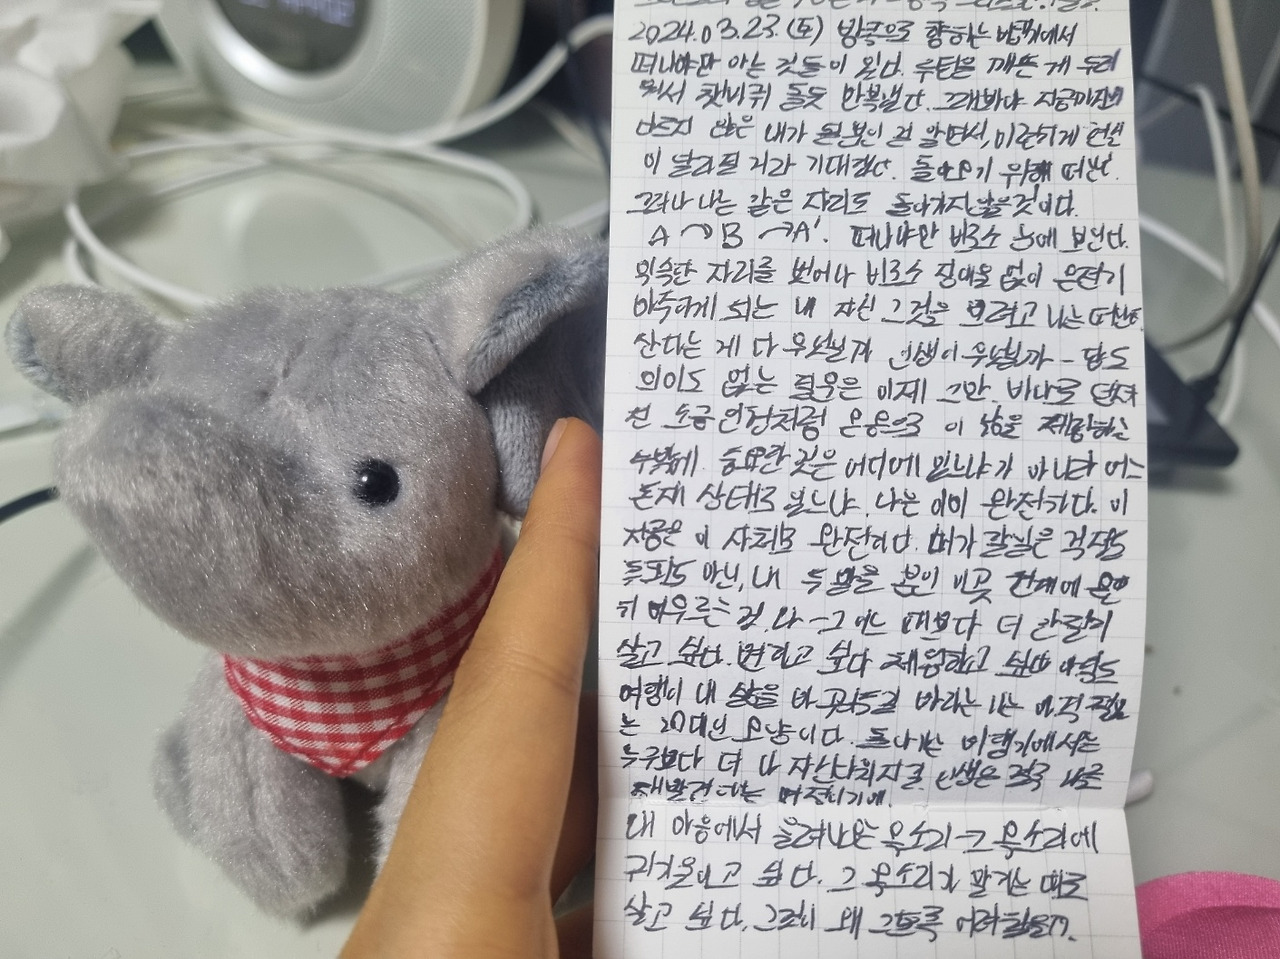 2024.03.23.(토) 방콕으로 향하는 비행기에서
떠나야만 아는 것들이 있다. 루틴을 깨는 게 두려
워서 쳇바퀴 돌듯 반복했다. 그래봐야 지금까지와
다르지 않은 내가 될 뿐인 걸 알면서, 미련하게 현실
이 달라질 거라 기대했다. 돌아오기 위해 떠난다.
그러나 나는 같은 자리로 돌아가지 않을 것이다.
A → B → A'. 떠나야만 비로소 눈에 보인다.
익숙한 자리를 벗어나 비로소 장애물 없이 온전히
마주하게 되는 내 자신 그것을 보려고 나는 떠난다.
산다는 게 다 무엇일까 인생이 무엇일까 - 답도
의미도 없는 질문은 이제 그만. 바다로 던져
진 소금인형처럼 온몸으로 이 삶을 체험하는
수밖에. 중요한 것은 어디에 있느냐가 아니라 어느
존재 상태로 있느냐. 나는 이미 완전하다. 이
지금은 이 자체로 완전하다. 내가 할 일은 걱정도
후회도 아닌, 내 두 발을 붙인 이곳 현재에 온
머무르는 것. 나 - 그 어느 때보다 더 간절히
살고 싶다. 변하고 싶다 체험하고 싶다 아직도
여행이 내 삶을 바꿔주길 바라는 나는 아직
는 20대인 모양이다. 돌아가는 비행기에서는
누구보다 더 나 자신다워지길. 인생은 결국 나를
재발견하는 여정이기에.
내 마음에서 울려나오는 목소리 - 그 목소리에
귀기울이고 싶다. 그 목소리가 말하는 대로
살고 싶다. 그것이 왜 그토록 어려웠을까?